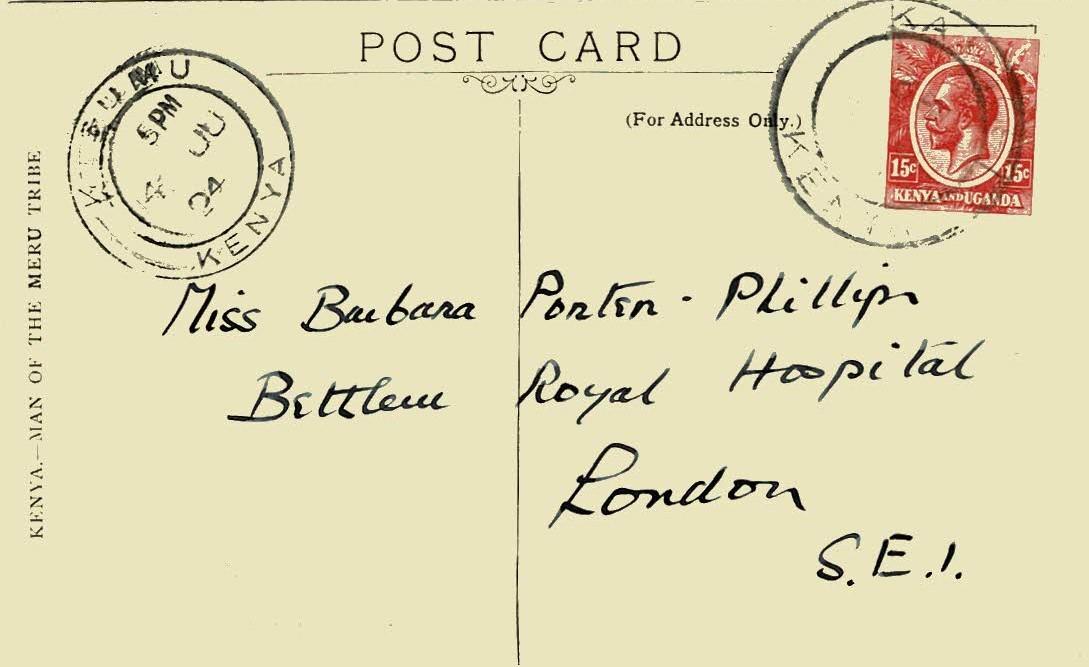 POST CARD
(For Address Only.)
KISUMU
5 PM
4 JU
24
KENYA
KA
KENYA
15c 15c
KENYA AND UGANDA
KENYA.—MAN OF THE MERU TRIBE
Miss Barbara Porter-Phillips
Bethlem Royal Hospital
London
S.E.1.